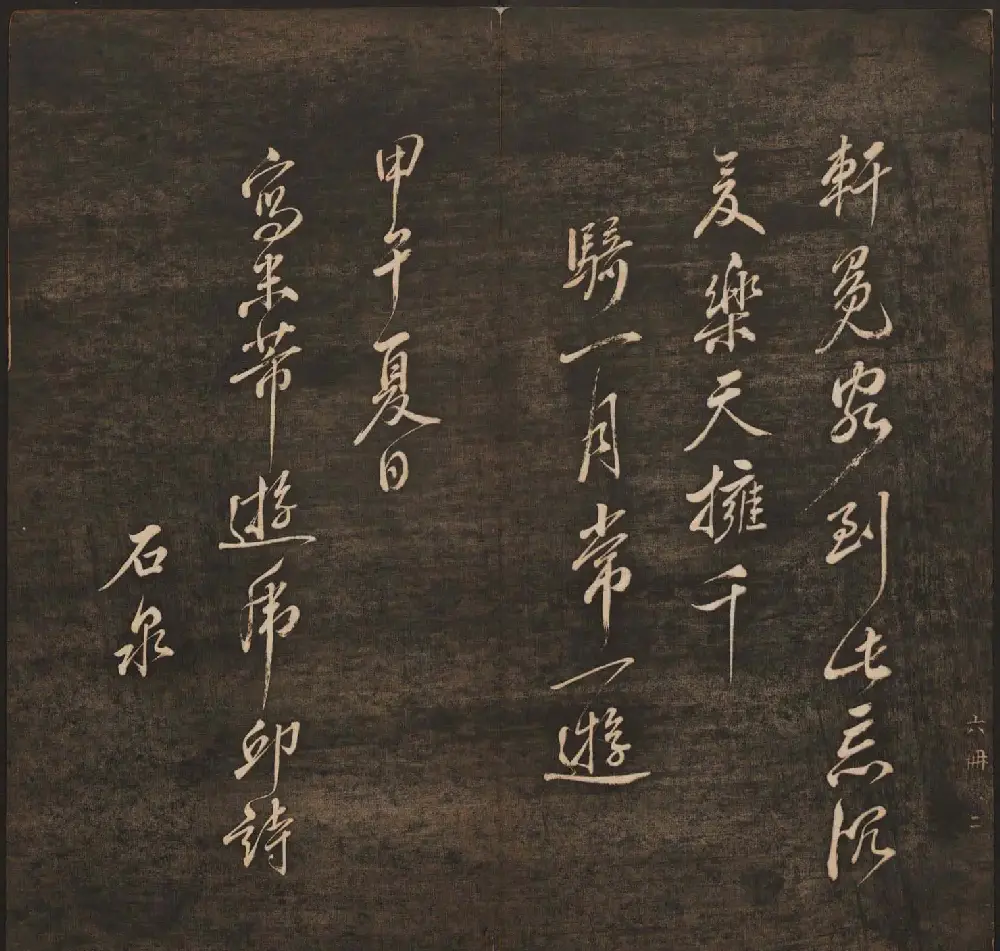 軒冕客到此忘沉
憂樂天擁千
騎一月常一遊
甲午夏日
寫米芾遊虎邱詩
石泉
六冊 二